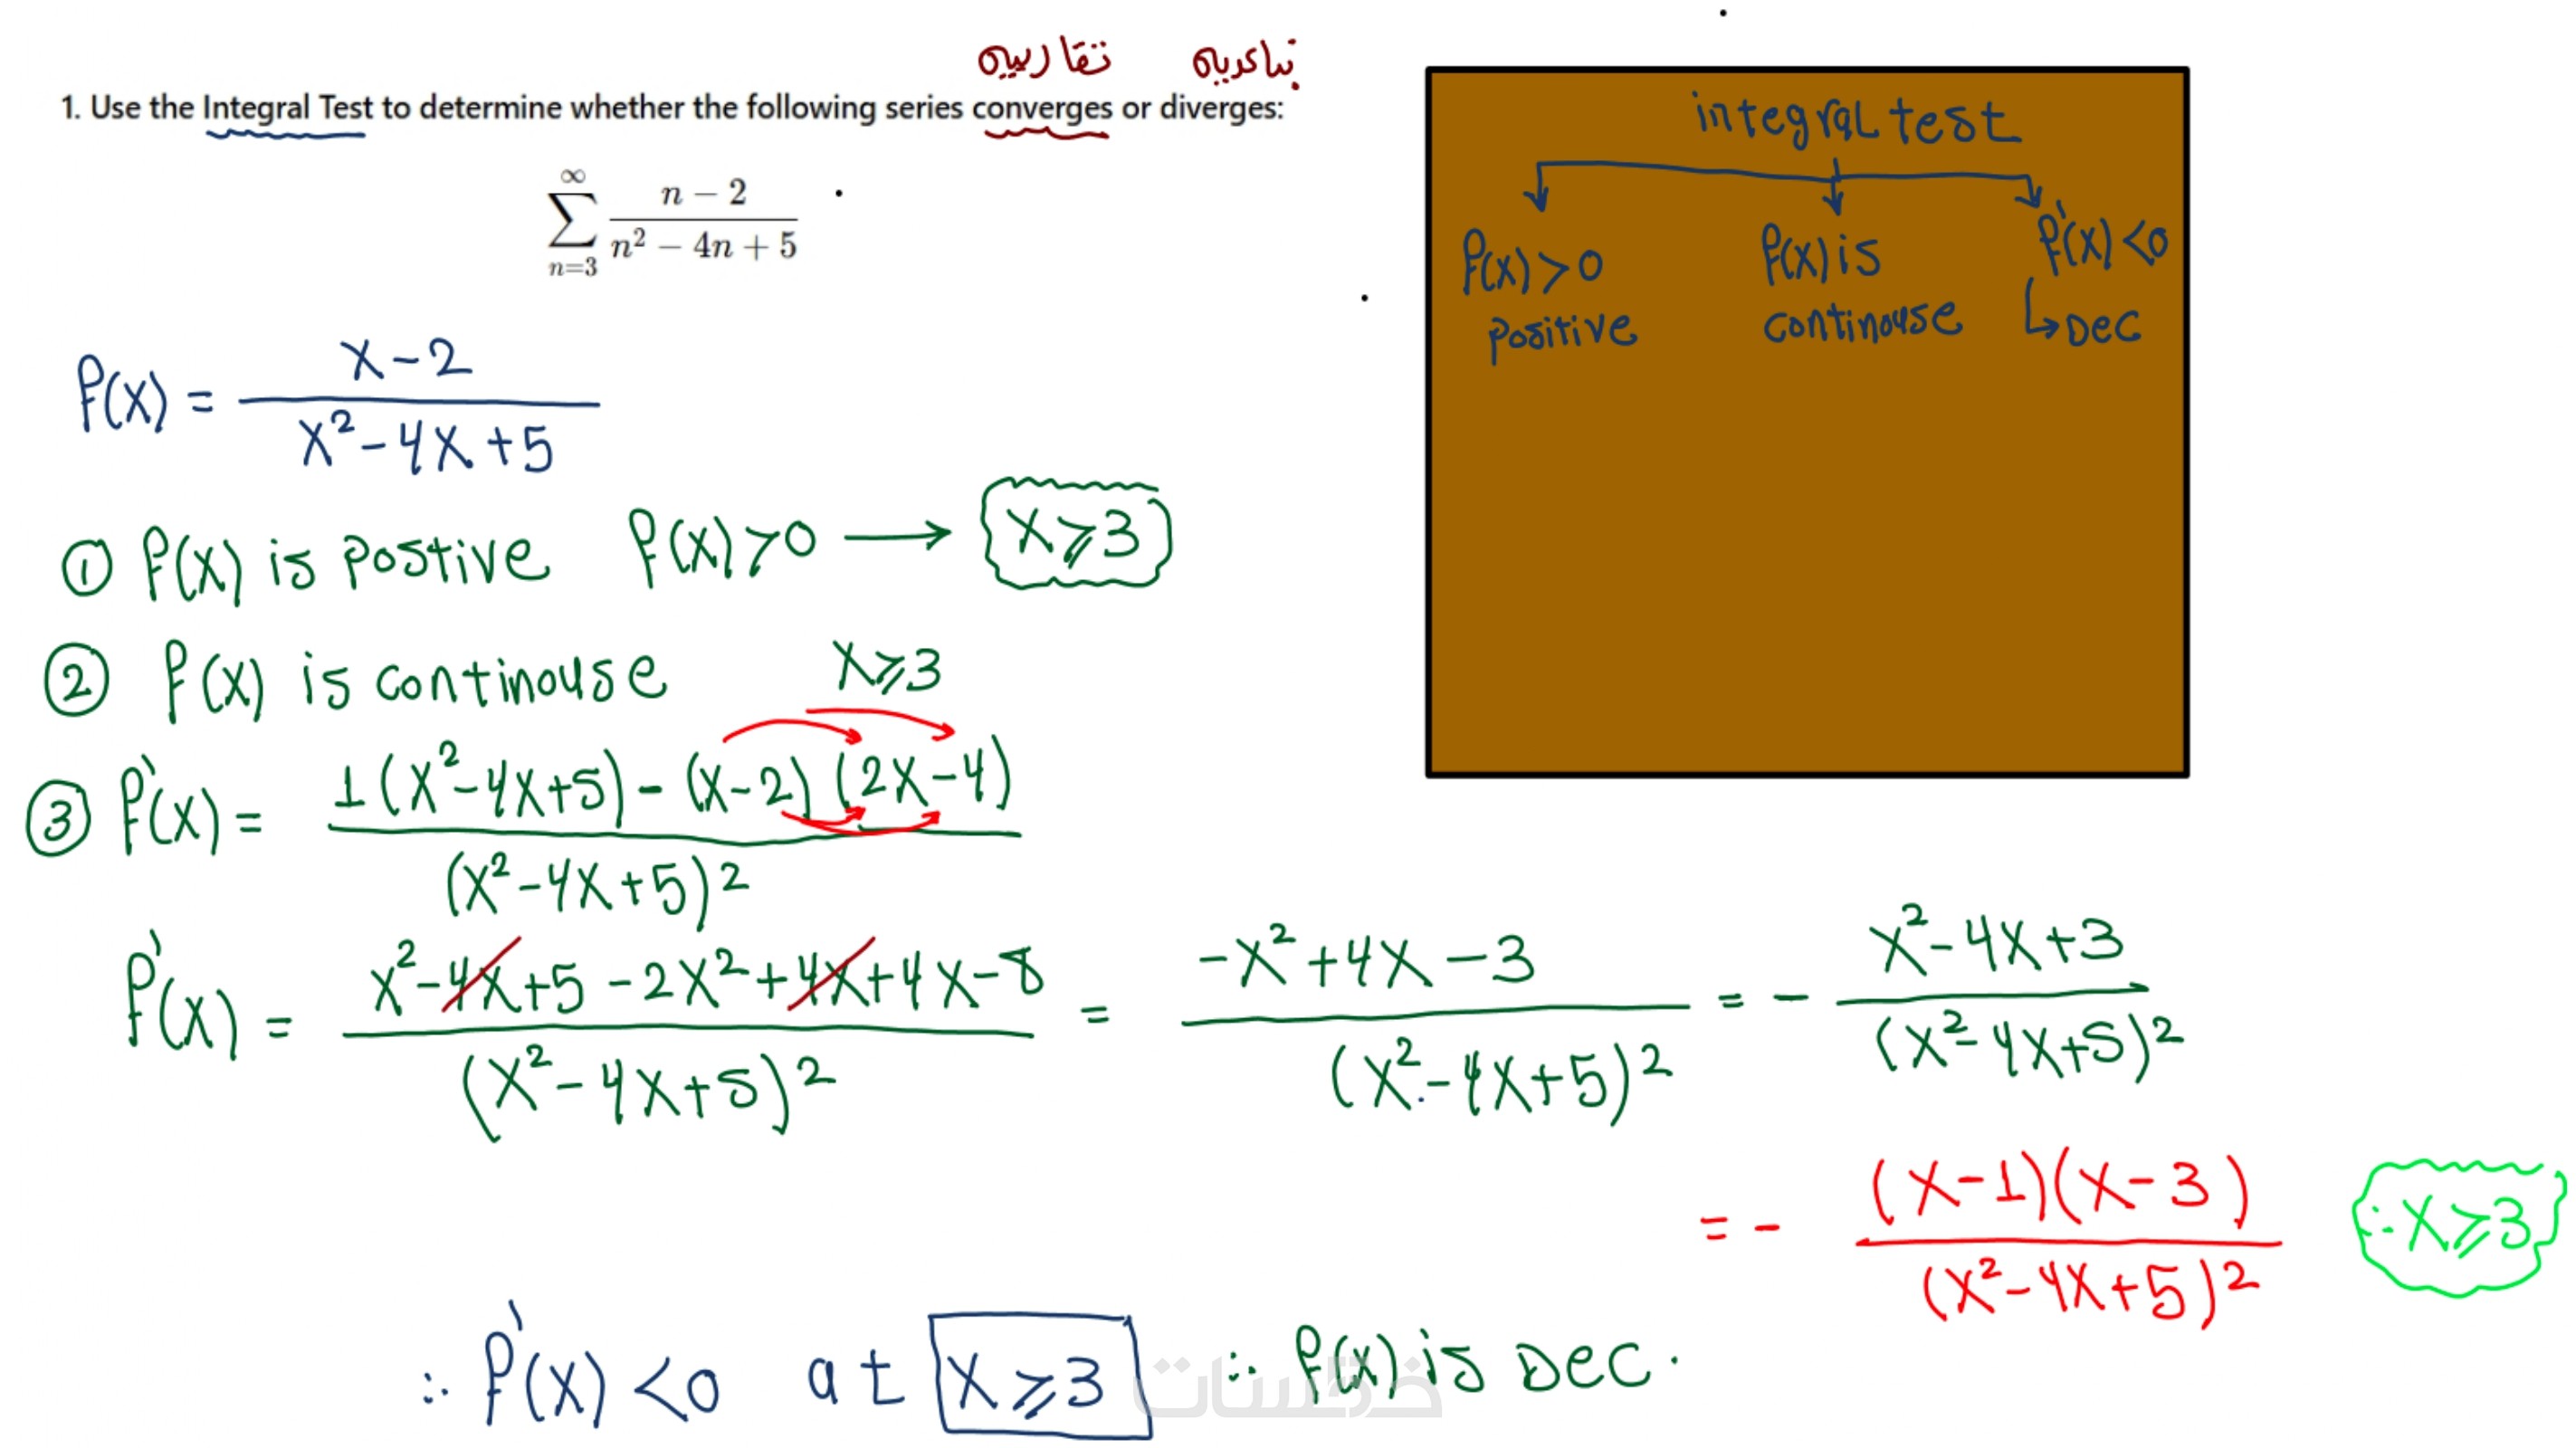 تقاربيه تباعديه
1. Use the Integral Test to determine whether the following series converges or diverges:
∞ ∑ n=3 (n − 2)/(n² − 4n + 5)
integral test
f(x) > 0 f(x) is f'(x) < 0
positive continouse ↳ Dec
f(x) = (x-2)/(x²-4x+5)
① f(x) is postive f(x) > 0 → x ⩾ 3
② f(x) is continouse x ⩾ 3
③ f'(x) = (1(x²-4x+5) - (x-2)(2x-4))/(x²-4x+5)²
f'(x) = (x²-4x+5-2x²+4x+4x-8)/(x²-4x+5)² = (-x²+4x-3)/(x²-4x+5)² = - (x²-4x+3)/(x²-4x+5)²
= - ((x-1)(x-3))/(x²-4x+5)² ∵ x ⩾ 3
∴ f'(x) < 0 at x ⩾ 3 ∴ f(x) is Dec.
خمسات